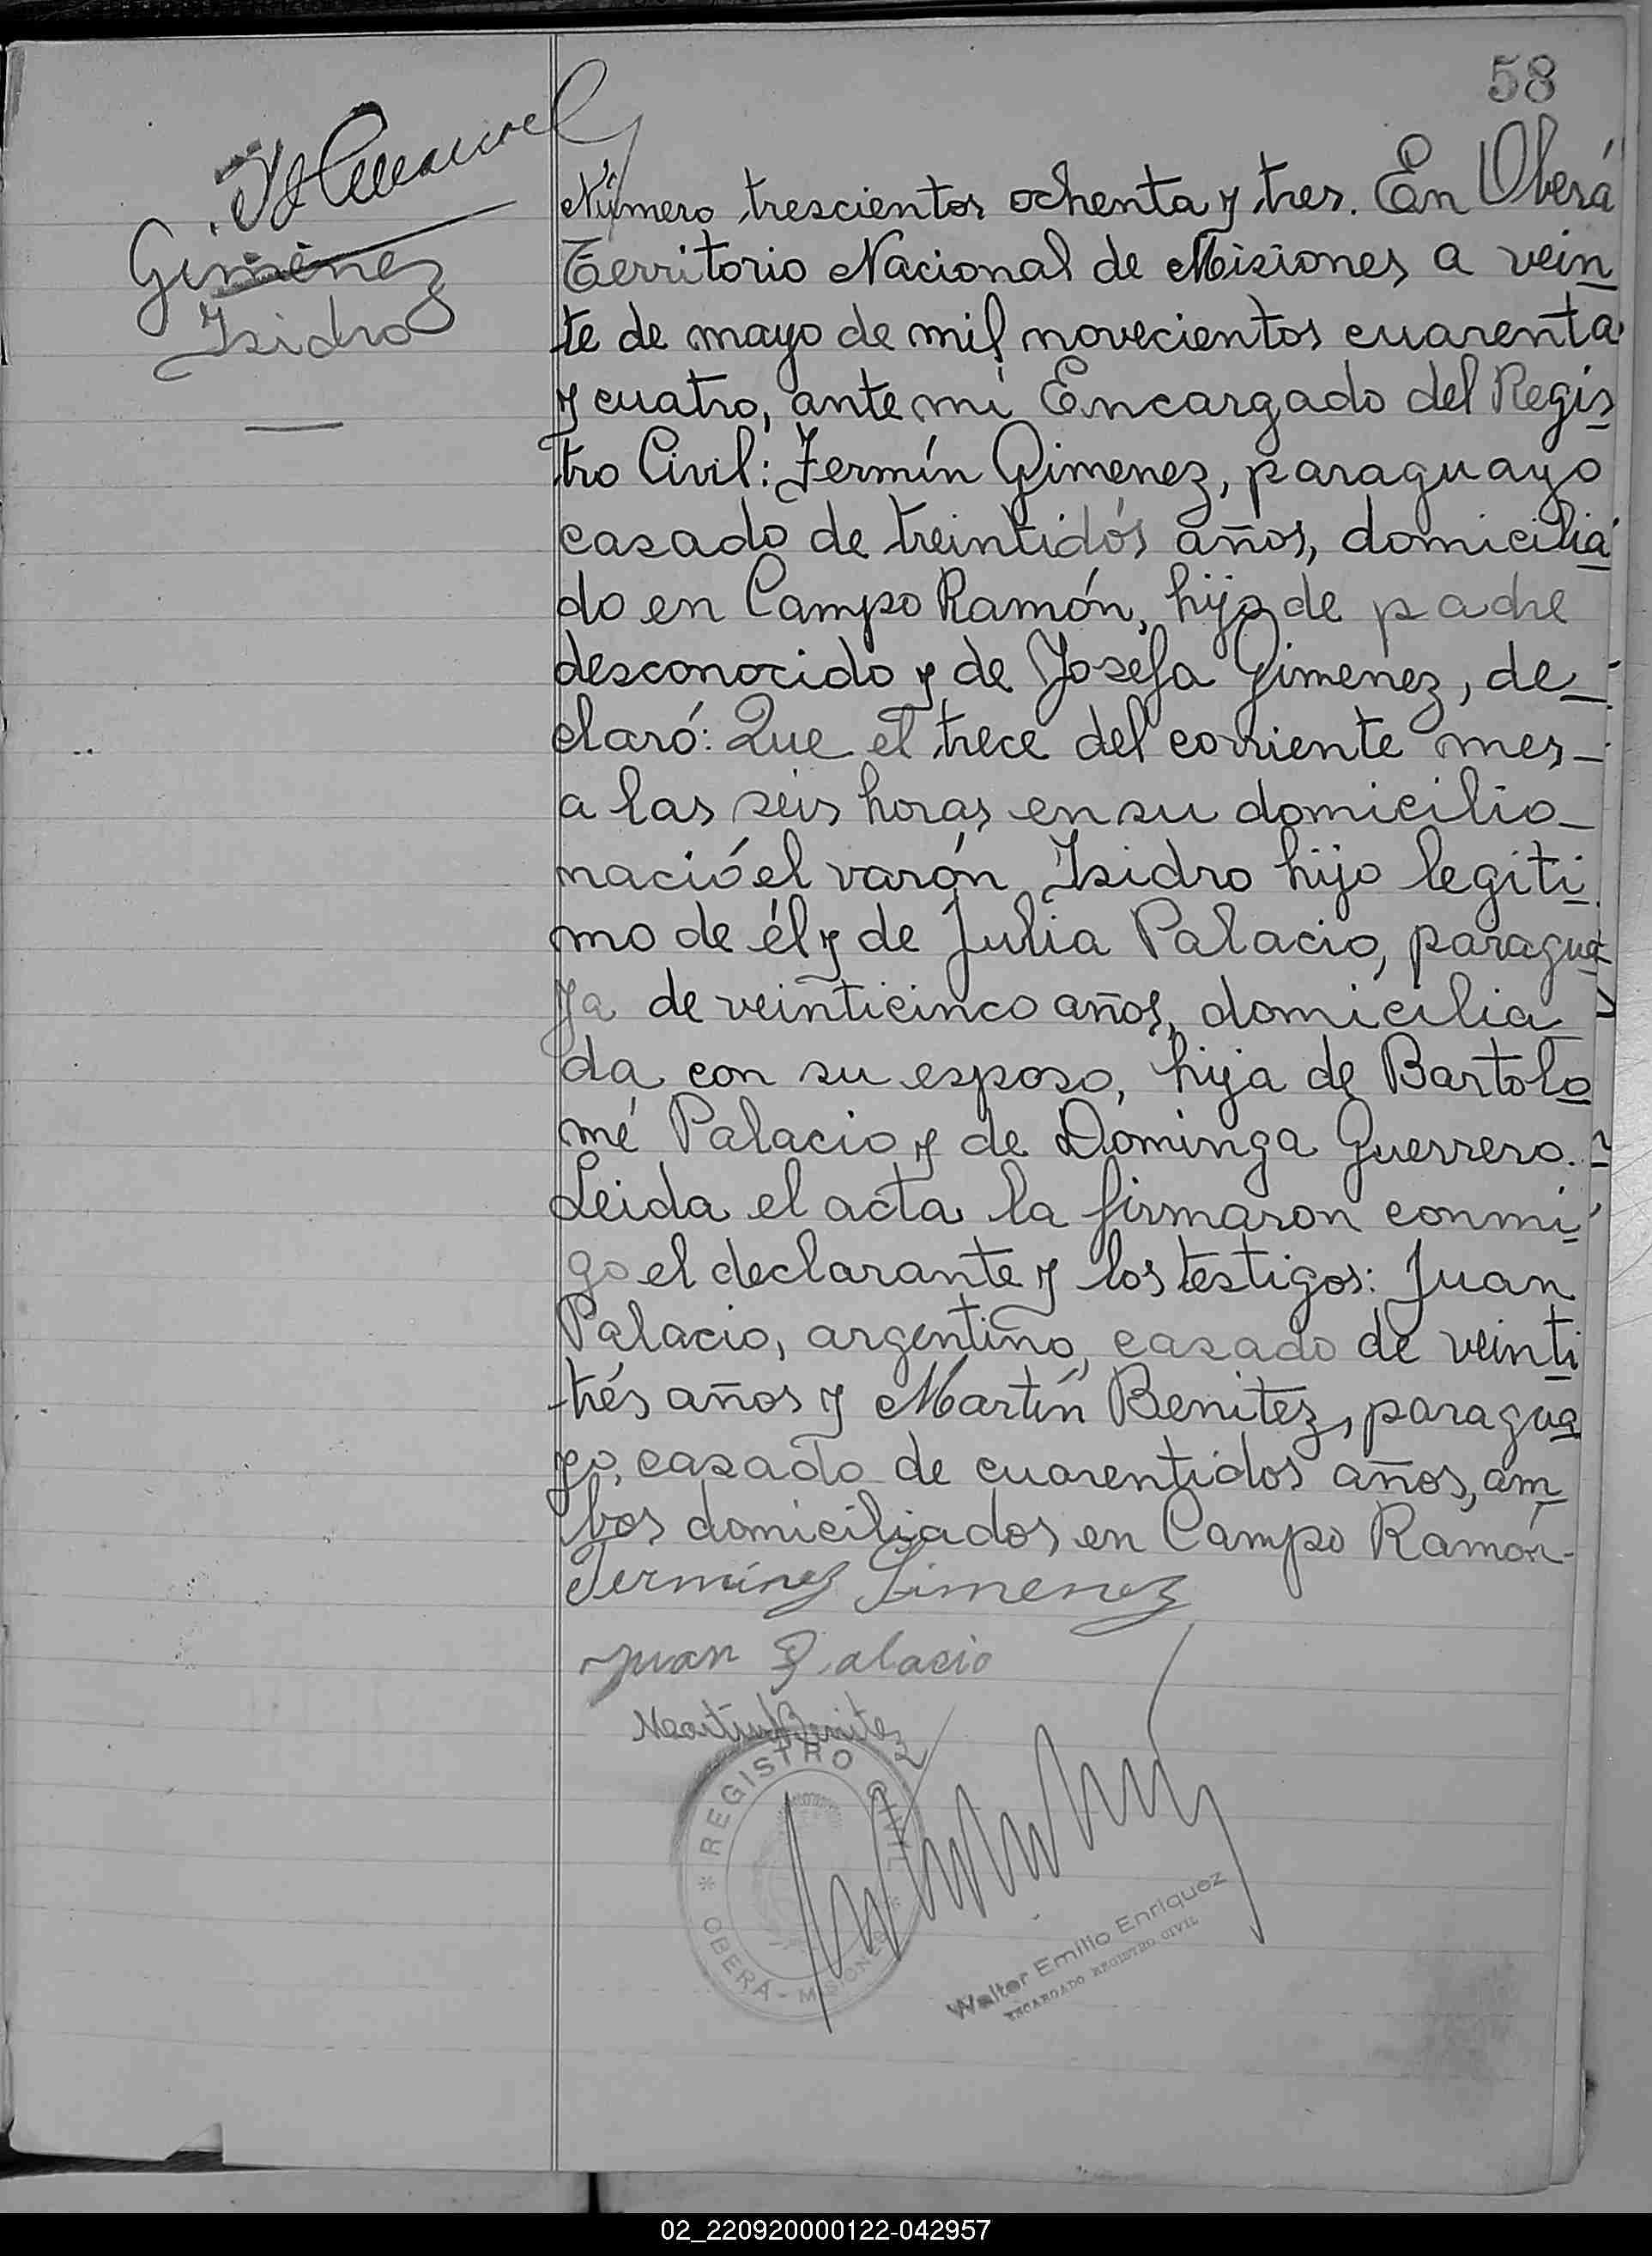 58
Gimenez
Isidro
Número trescientos ochenta y tres. En Oberá
Territorio Nacional de Misiones a vein
te de mayo de mil novecientos cuarenta
y cuatro, ante mí Encargado del Regis
tro Civil: Fermín Gimenez, paraguayo
casado de treintidós años, domicilia
do en Campo Ramón, hijo de padre
desconocido y de Josefa Gimenez, de_
claró: Que el trece del corriente mes_
a las seis horas en su domicilio_
nació el varón Isidro hijo legiti
mo de él y de Julia Palacio, paragua
ya de veinticinco años, domicilia
da con su esposo, hija de Bartolo
mé Palacio y de Dominga Guerrero.
Leida el acta la firmaron conmi
go el declarante y los testigos: Juan
Palacio, argentino, casado de veinti
trés años y Martín Benitez, paragua
yo, casado de cuarentidos años, am
bos domiciliados en Campo Ramón-
Juan Palacio
Martin Benitez
REGISTRO CIVIL
OBERÁ - MISIONES
Walter Emilio Enriquez
ENCARGADO REGISTRO CIVIL
02_220920000122-042957